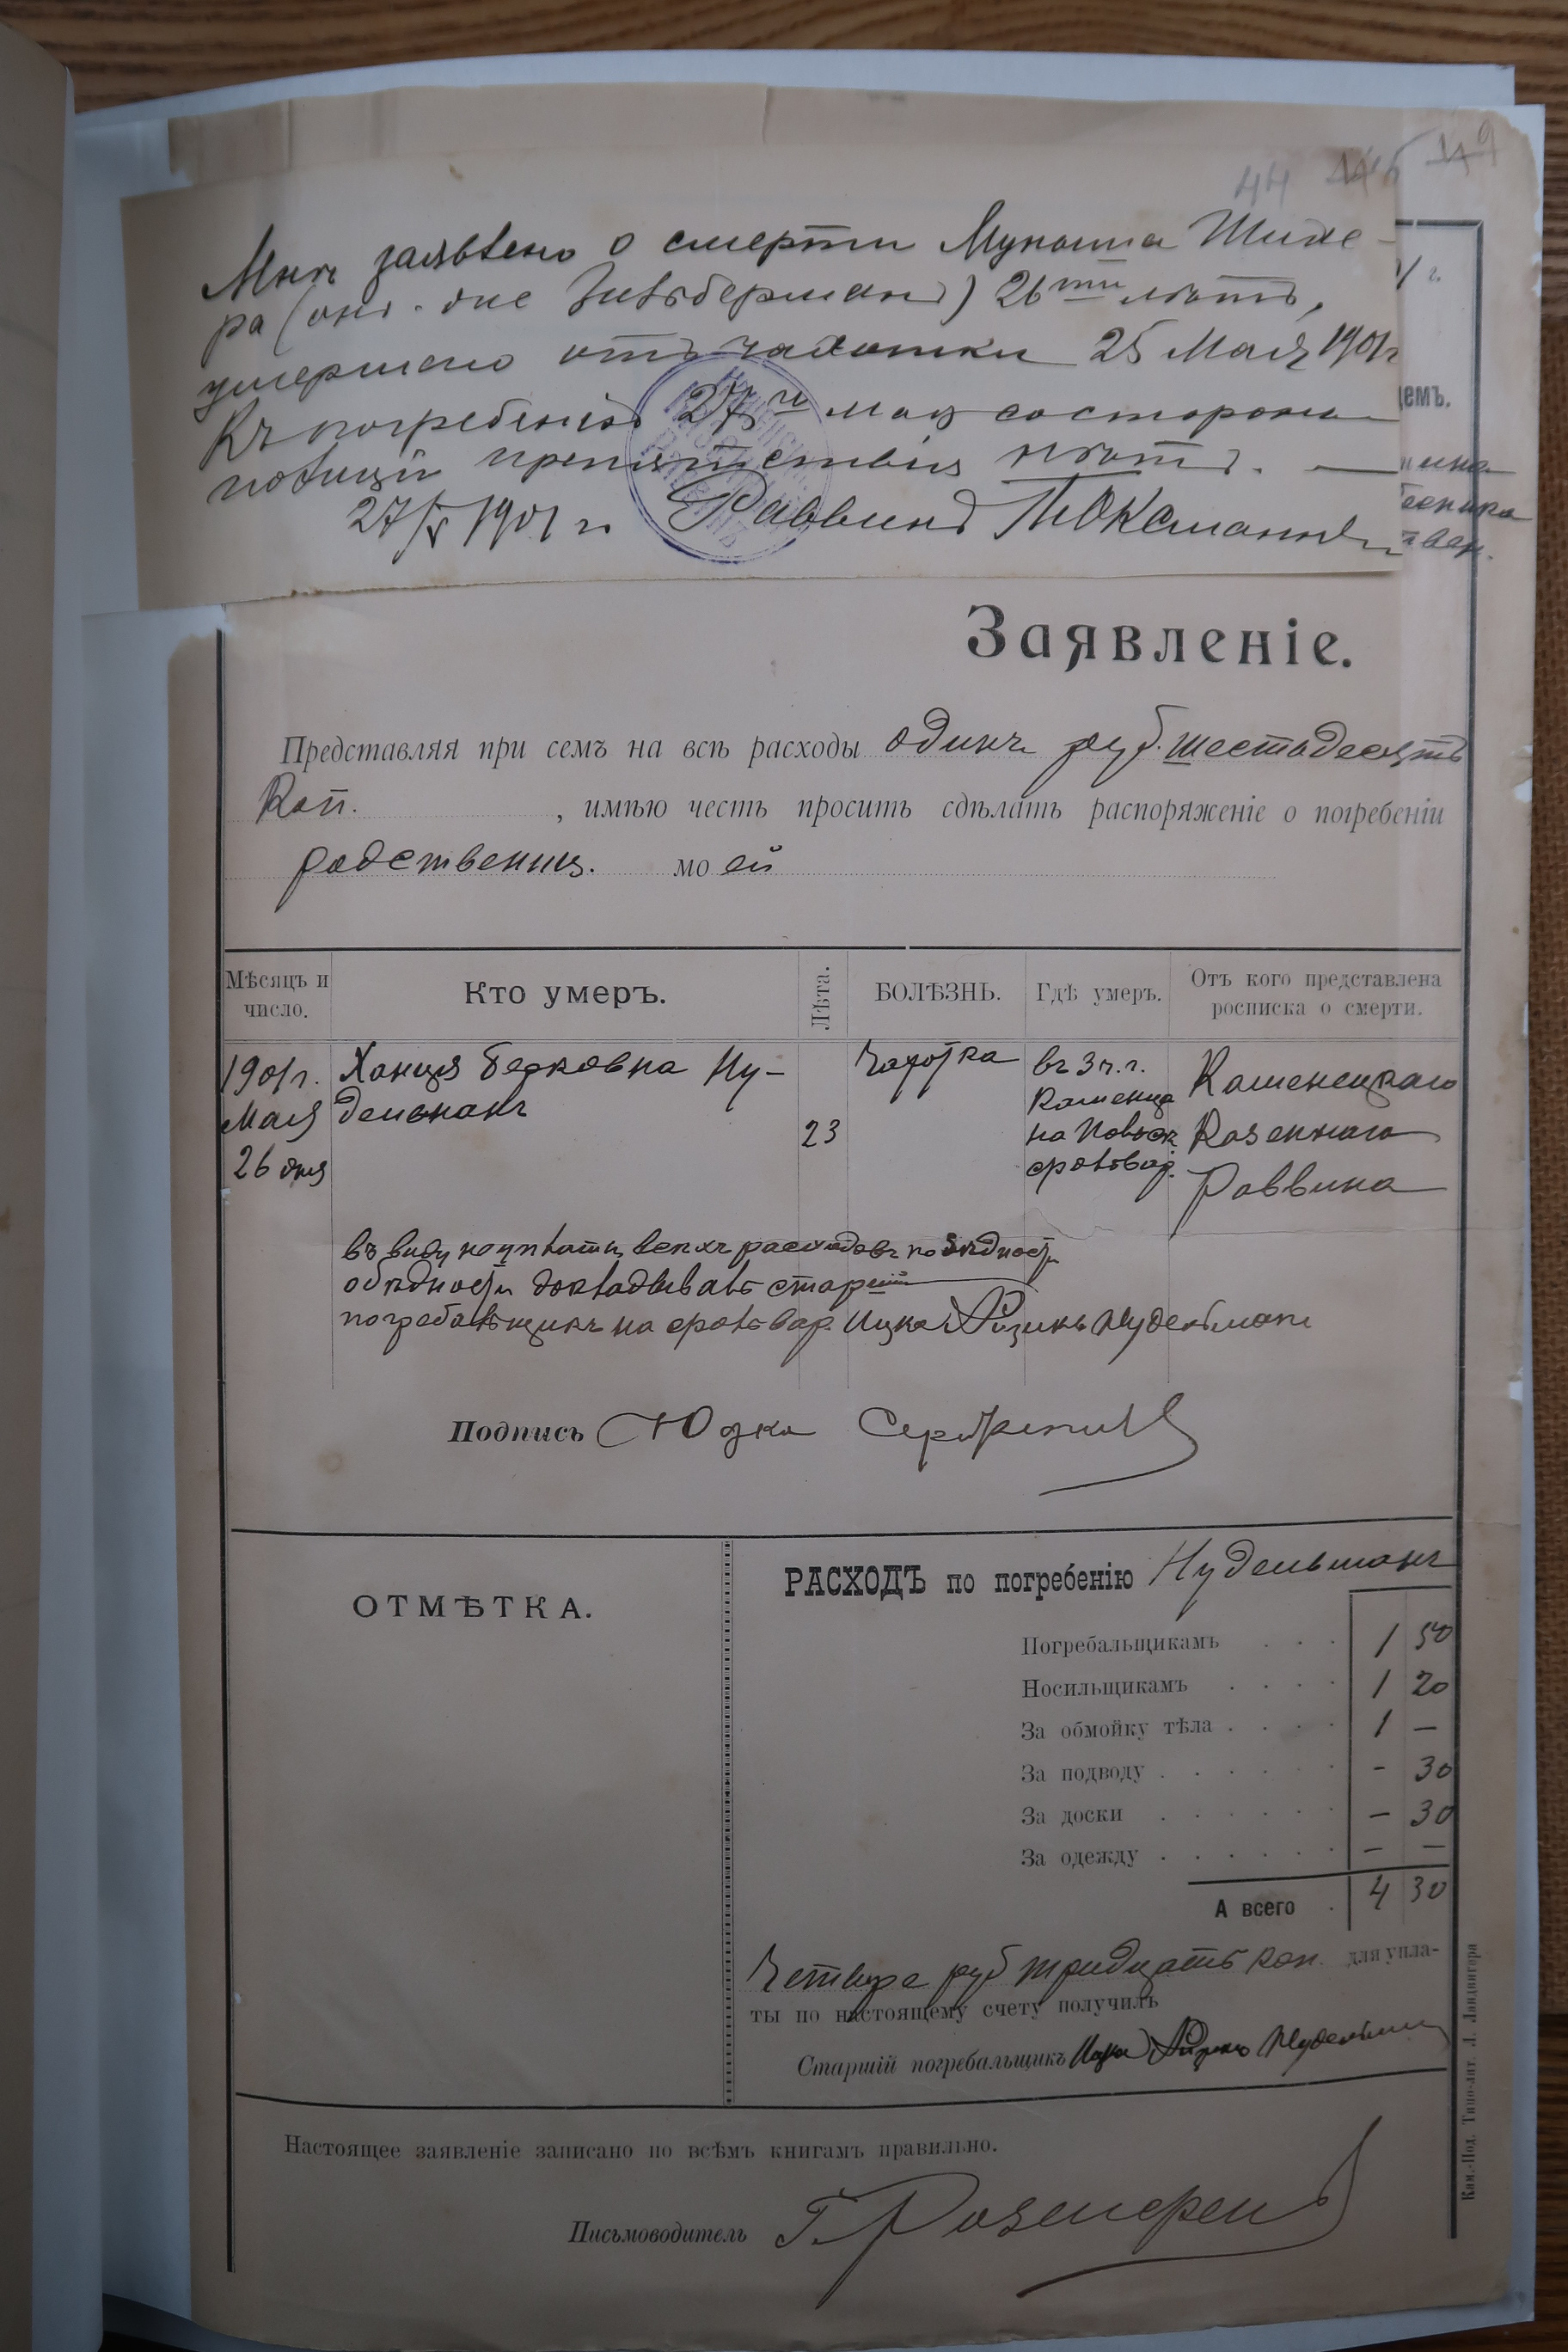 44
Мнѣ заявлено о смерти Мункиша Шихе-
ра (онъ-же Зильберманъ) 26ти лѣтъ,
умершаго отъ чахотки 25 Мая 1901 г
Къ погребенію 27го мая со стороны
полиціи препятствія нѣтъ.
27/V 1901 г. Раввинъ
г.
емъ.
Заявленіе.
Представляя при семъ на всѣ расходы одинъ руб. шестьдесятъ
Коп. , имѣю честь просить сдѣлать распоряженіе о погребеніи
родственниц. моей
Мѣсяцъ и число. Кто умеръ. Лѣта. БОЛѢЗНЬ. Гдѣ умеръ. Отъ кого представлена росписка о смерти.
1901 г. Ханця Берковна Ну- чахотка въ г. Каменецкаго
Мая дельманъ 23 Каменца Казеннаго
26 дня на Раввина
въ виду неуплаты всѣхъ расходовъ по бѣдности
о бѣдности докладывалъ старшій
погребальщикъ на Ицко Айзикъ Нудельманъ
Подпись Юдко
ОТМѢТКА.
РАСХОДЪ по погребенію Нудельманъ
Погребальщикамъ . . . 1 50
Носильщикамъ . . . . 1 20
За обмойку тѣла . . . . 1 —
За подводу . . . . . . - 30
За доски . . . . . . — 30
За одежду . . . . . . — —
А всего . 4 30
Четыре руб тридцать коп. для упла-
ты по настоящему счету получилъ
Старшій погребальщикъ Ицко Айзикъ Нудельман
Настоящее заявленіе записано по всѣмъ книгамъ правильно.
Письмоводитель Г. Розенкрен
Кам.-Под. Типо-лит. Л. Ландвигера